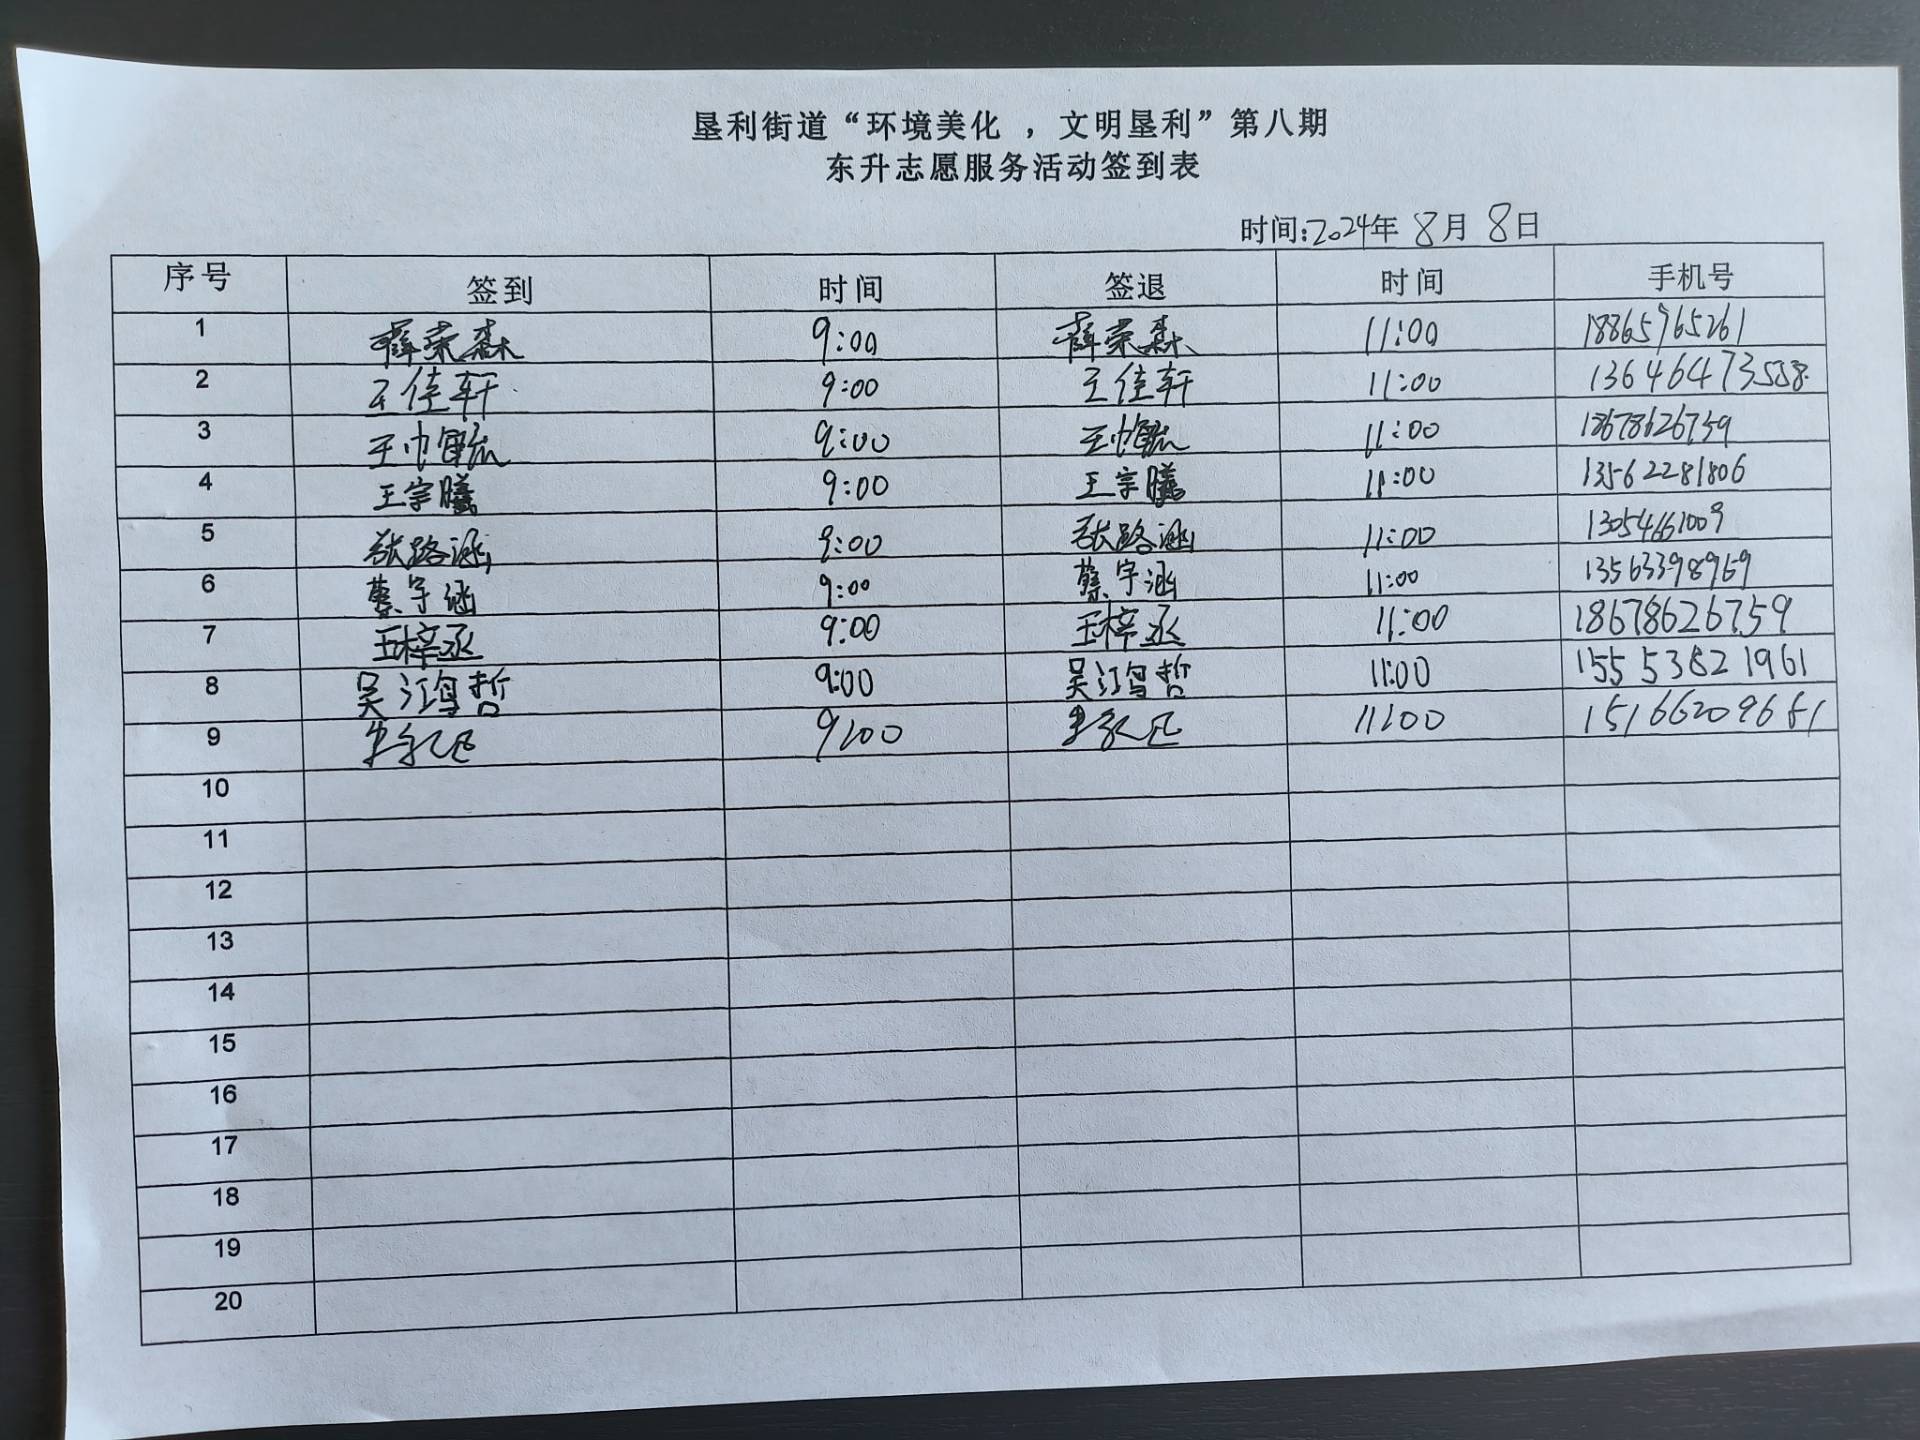 垦利街道“环境美化 ，文明垦利”第八期
东升志愿服务活动签到表
时间:2024年 8月 8日
序号 签到 时间 签退 时间 手机号
1 薛荣森 9:00 薛荣森 11:00 18865965261
2 王佳轩 9:00 王佳轩 11:00 13646473558
3 9:00 11:00 18678626759
4 王宇曦 9:00 王宇曦 11:00 13562281806
5 张路涵 9:00 张路涵 11:00 13054661009
6 蔡宇涵 9:00 蔡宇涵 11:00 13563398969
7 王梓丞 9:00 王梓丞 11:00 18678626759
8 吴鸿哲 9:00 吴鸿哲 11:00 15553821961
9 9:00 11:00
10
11
12
13
14
15
16
17
18
19
20